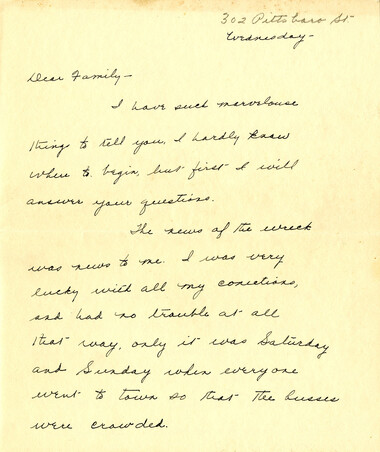 302 Pittsboro St
Wednesday-
Dear Family-
I have such marvelouse
thing to tell you, I hardly know
where to begin, but first I will
answer your questions.
The news of the wreck
was news to me. I was very
lucky with all my conections,
and had no trouble at all
that way, only it was Saturday
and Sunday when everyone
went to town so that the busses
were crowded.